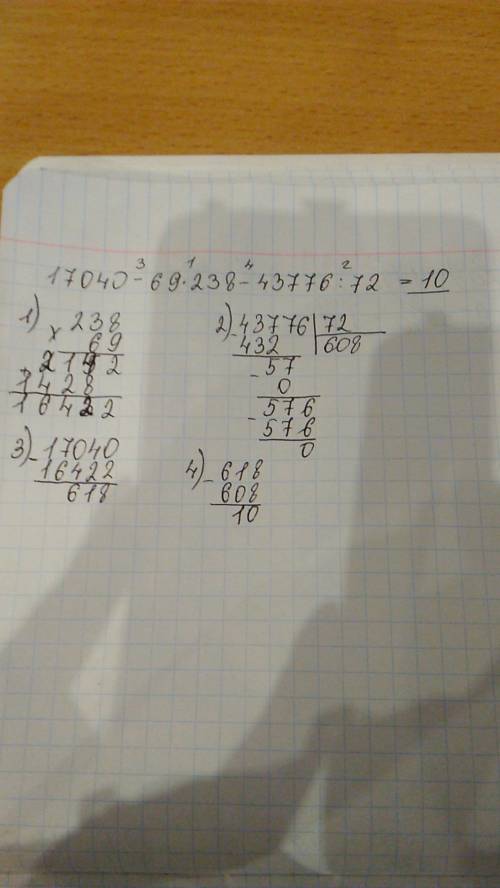 3 1 4 2
17040 - 69 · 238 - 43776 : 72 = 10
1)
× 238
69
2142
1428
16422
2)
- 43776 | 72
432 | 608
- 57
0
- 576
576
0
3)
- 17040
16422
618
4)
- 618
608
10